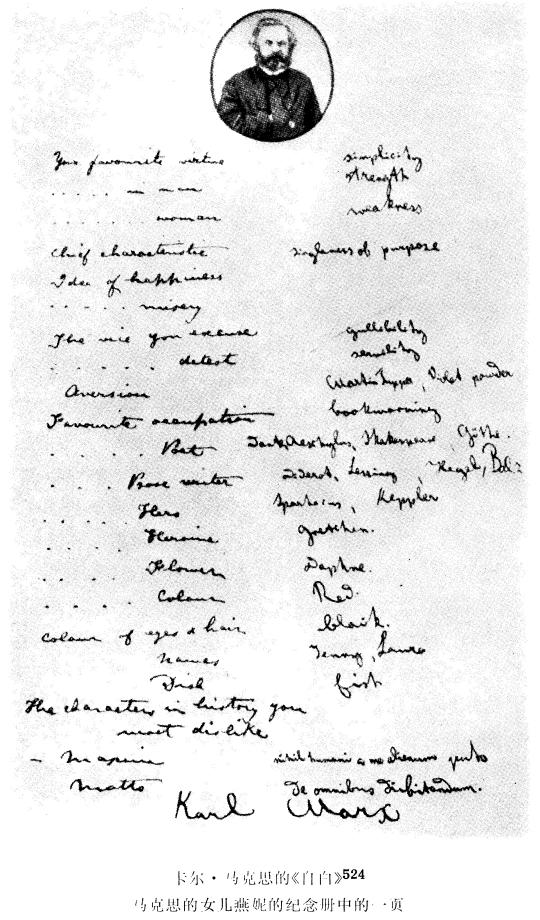 Your favourite virtue simplicity
. . . . . in man strength
. . . . . . woman weakness
Chief characteristic singleness of purpose
Idea of happiness
. . . . . misery
The vice you excuse gullibility
. . . . . . detest servility
Aversion Martin Tupper, Violet powder
Favourite occupation bookworming
. . . . . . Poet Dante, Aeschylus, Shakespeare, Göthe.
. . . . . Prose writer Diderot, Lessing, Hegel,
. . . . . Hero Spartacus, Keppler
. . . . . Heroine Gretchen.
. . . . . Flower Daphne.
. . . . . Colour Red.
Colour of eyes & hair black.
Names Jenny, Laura
Dish fish
The characters in history you
most dislike
– Maxim nihil humani a me alienum puto
Motto De omnibus dubitandum.
Karl Marx
卡尔·马克思的《自白》524
马克思的女儿燕妮的纪念册中的一页